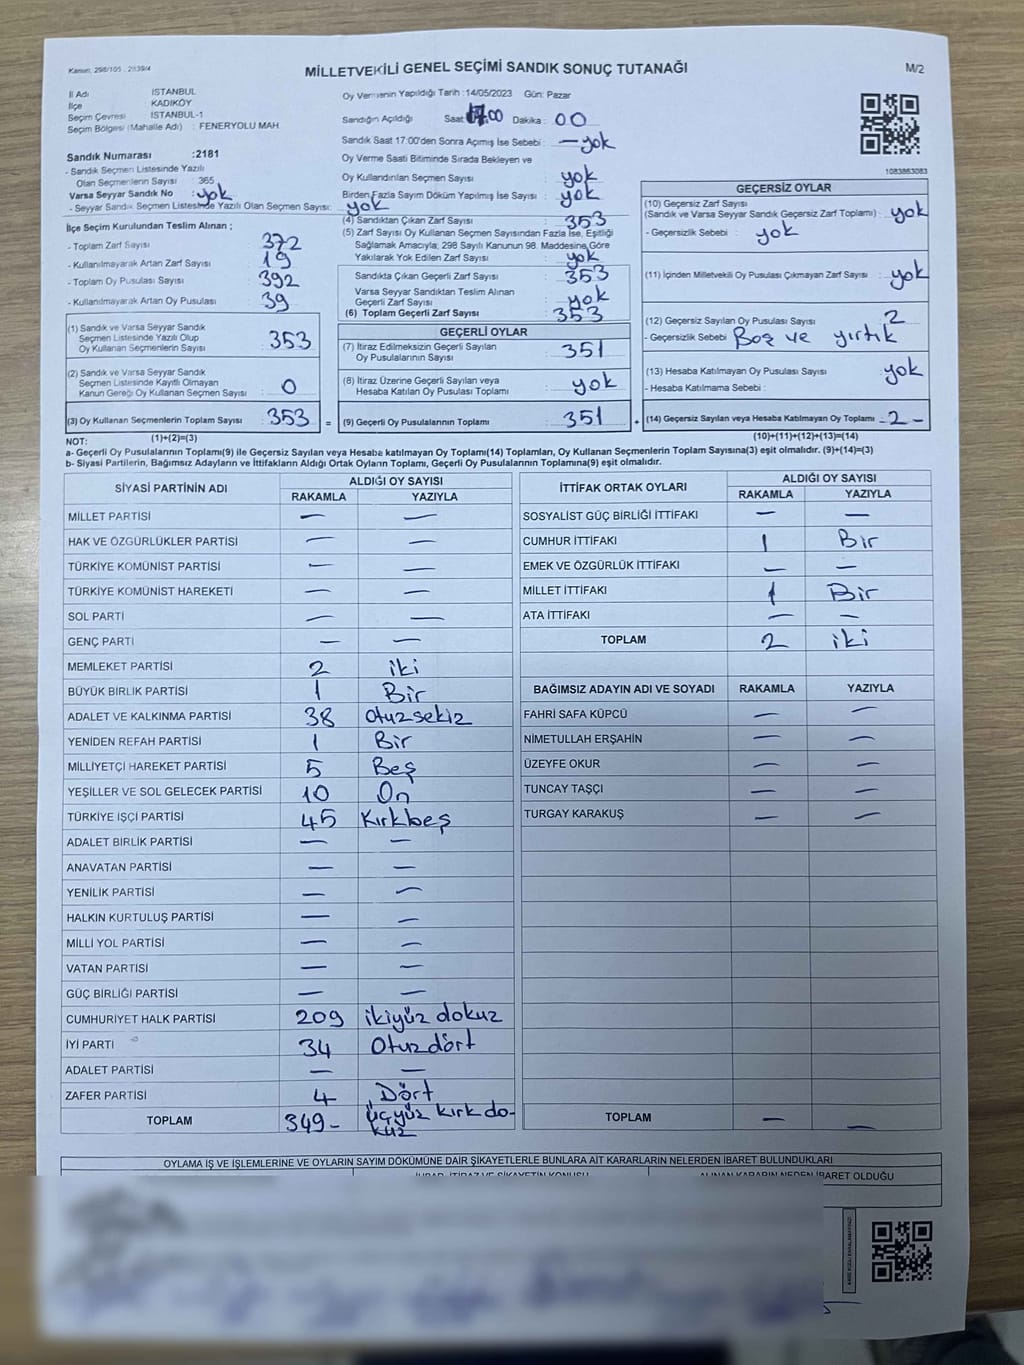 Kanun: 298/105 , 2839/4
MİLLETVEKİLİ GENEL SEÇİMİ SANDIK SONUÇ TUTANAĞI
M/2
İl Adı İSTANBUL
İlçe KADIKÖY
Seçim Çevresi İSTANBUL-1
Seçim Bölgesi (Mahalle Adı) : FENERYOLU MAH
Sandık Numarası :2181
- Sandık Seçmen Listesinde Yazılı
Olan Seçmenlerin Sayısı : 365
Varsa Seyyar Sandık No : yok
- Seyyar Sandık Seçmen Listesinde Yazılı Olan Seçmen Sayısı: yok
İlçe Seçim Kurulundan Teslim Alınan ;
- Toplam Zarf Sayısı 372
- Kullanılmayarak Artan Zarf Sayısı : 19
- Toplam Oy Pusulası Sayısı : 392
- Kullanılmayarak Artan Oy Pusulası : 39
(1) Sandık ve Varsa Seyyar Sandık
Seçmen Listesinde Yazılı Olup
Oy Kullanan Seçmenlerin Sayısı : 353
(2) Sandık ve Varsa Seyyar Sandık
Seçmen Listesinde Kayıtlı Olmayan
Kanun Gereği Oy Kullanan Seçmen Sayısı : 0
(3) Oy Kullanan Seçmenlerin Toplam Sayısı : 353 =
Oy Vermenin Yapıldığı Tarih :14/05/2023 Gün: Pazar
Sandığın Açıldığı Saat : 17.00 Dakika : 00
Sandık Saat 17:00'den Sonra Açımış İse Sebebi : — yok
Oy Verme Saati Bitiminde Sırada Bekleyen ve
Oy Kullandırılan Seçmen Sayısı : yok
Birden Fazla Sayım Döküm Yapılmış İse Sayısı : yok
(4) Sandıktan Çıkan Zarf Sayısı : 353
(5) Zarf Sayısı Oy Kullanan Seçmen Sayısından Fazla İse, Eşitliği
Sağlamak Amacıyla; 298 Sayılı Kanunun 98. Maddesine Göre
Yakılarak Yok Edilen Zarf Sayısı : yok
Sandıkta Çıkan Geçerli Zarf Sayısı : 353
Varsa Seyyar Sandıktan Teslim Alınan
Geçerli Zarf Sayısı : yok
(6) Toplam Geçerli Zarf Sayısı : 353
GEÇERLİ OYLAR
(7) İtiraz Edilmeksizin Geçerli Sayılan
Oy Pusulalarının Sayısı : 351
(8) İtiraz Üzerine Geçerli Sayılan veya
Hesaba Katılan Oy Pusulası Toplamı : yok
(9) Geçerli Oy Pusulalarının Toplamı : 351 +
1083863083
GEÇERSİZ OYLAR
(10) Geçersiz Zarf Sayısı
(Sandık ve Varsa Seyyar Sandık Geçersiz Zarf Toplamı) : yok
- Geçersizlik Sebebi : yok
(11) İçinden Milletvekili Oy Pusulası Çıkmayan Zarf Sayısı : yok
(12) Geçersiz Sayılan Oy Pusulası Sayısı : 2
- Geçersizlik Sebebi : Boş ve yırtık
(13) Hesaba Katılmayan Oy Pusulası Sayısı : yok
- Hesaba Katılmama Sebebi :
(14) Geçersiz Sayılan veya Hesaba Katılmayan Oy Toplamı : 2 -
NOT: (1)+(2)=(3) (10)+(11)+(12)+(13)=(14)
a- Geçerli Oy Pusulasının Toplamı(9) ile Geçersiz Sayılan veya Hesaba katılmayan Oy Toplamı(14) Toplamları, Oy Kullanan Seçmenlerin Toplam Sayısına(3) eşit olmalıdır. (9)+(14)=(3)
b- Siyasi Partilerin, Bağımsız Adayların ve İttifakların Aldığı Ortak Oyların Toplamı, Geçerli Oy Pusulalarının Toplamına(9) eşit olmalıdır.
SİYASİ PARTİNİN ADI ALDIĞI OY SAYISI
RAKAMLA YAZIYLA
MİLLET PARTİSİ — —
HAK VE ÖZGÜRLÜKLER PARTİSİ — —
TÜRKİYE KOMÜNİST PARTİSİ — —
TÜRKİYE KOMÜNİST HAREKETİ — —
SOL PARTİ — —
GENÇ PARTİ — —
MEMLEKET PARTİSİ 2 iki
BÜYÜK BİRLİK PARTİSİ 1 Bir
ADALET VE KALKINMA PARTİSİ 38 Otuzsekiz
YENİDEN REFAH PARTİSİ 1 Bir
MİLLİYETÇİ HAREKET PARTİSİ 5 Beş
YEŞİLLER VE SOL GELECEK PARTİSİ 10 On
TÜRKİYE İŞÇİ PARTİSİ 45 Kırkbeş
ADALET BİRLİK PARTİSİ — —
ANAVATAN PARTİSİ — —
YENİLİK PARTİSİ — —
HALKIN KURTULUŞ PARTİSİ — —
MİLLİ YOL PARTİSİ — —
VATAN PARTİSİ — —
GÜÇ BİRLİĞİ PARTİSİ — —
CUMHURİYET HALK PARTİSİ 209 ikiyüz dokuz
İYİ PARTİ 34 Otuzdört
ADALET PARTİSİ — —
ZAFER PARTİSİ 4 Dört
TOPLAM 349- üçyüz kırk do-
kuz
İTTİFAK ORTAK OYLARI ALDIĞI OY SAYISI
RAKAMLA YAZIYLA
SOSYALİST GÜÇ BİRLİĞİ İTTİFAKI — —
CUMHUR İTTİFAKI 1 Bir
EMEK VE ÖZGÜRLÜK İTTİFAKI — —
MİLLET İTTİFAKI 1 Bir
ATA İTTİFAKI — —
TOPLAM 2 iki
BAĞIMSIZ ADAYIN ADI VE SOYADI RAKAMLA YAZIYLA
FAHRİ SAFA KÜPCÜ — —
NİMETULLAH ERŞAHİN — —
ÜZEYFE OKUR — —
TUNCAY TAŞÇI — —
TURGAY KARAKUŞ — —
TOPLAM — —
OYLAMA İŞ VE İŞLEMLERİNE VE OYLARIN SAYIM DÖKÜMÜNE DAİR ŞİKAYETLERLE BUNLARA AİT KARARLARIN NELERDEN İBARET BULUNDUKLARI
İHBAR, İTİRAZ VE ŞİKAYETİN KONUSU ALINAN KARARIN NEDEN İBARET OLDUĞU